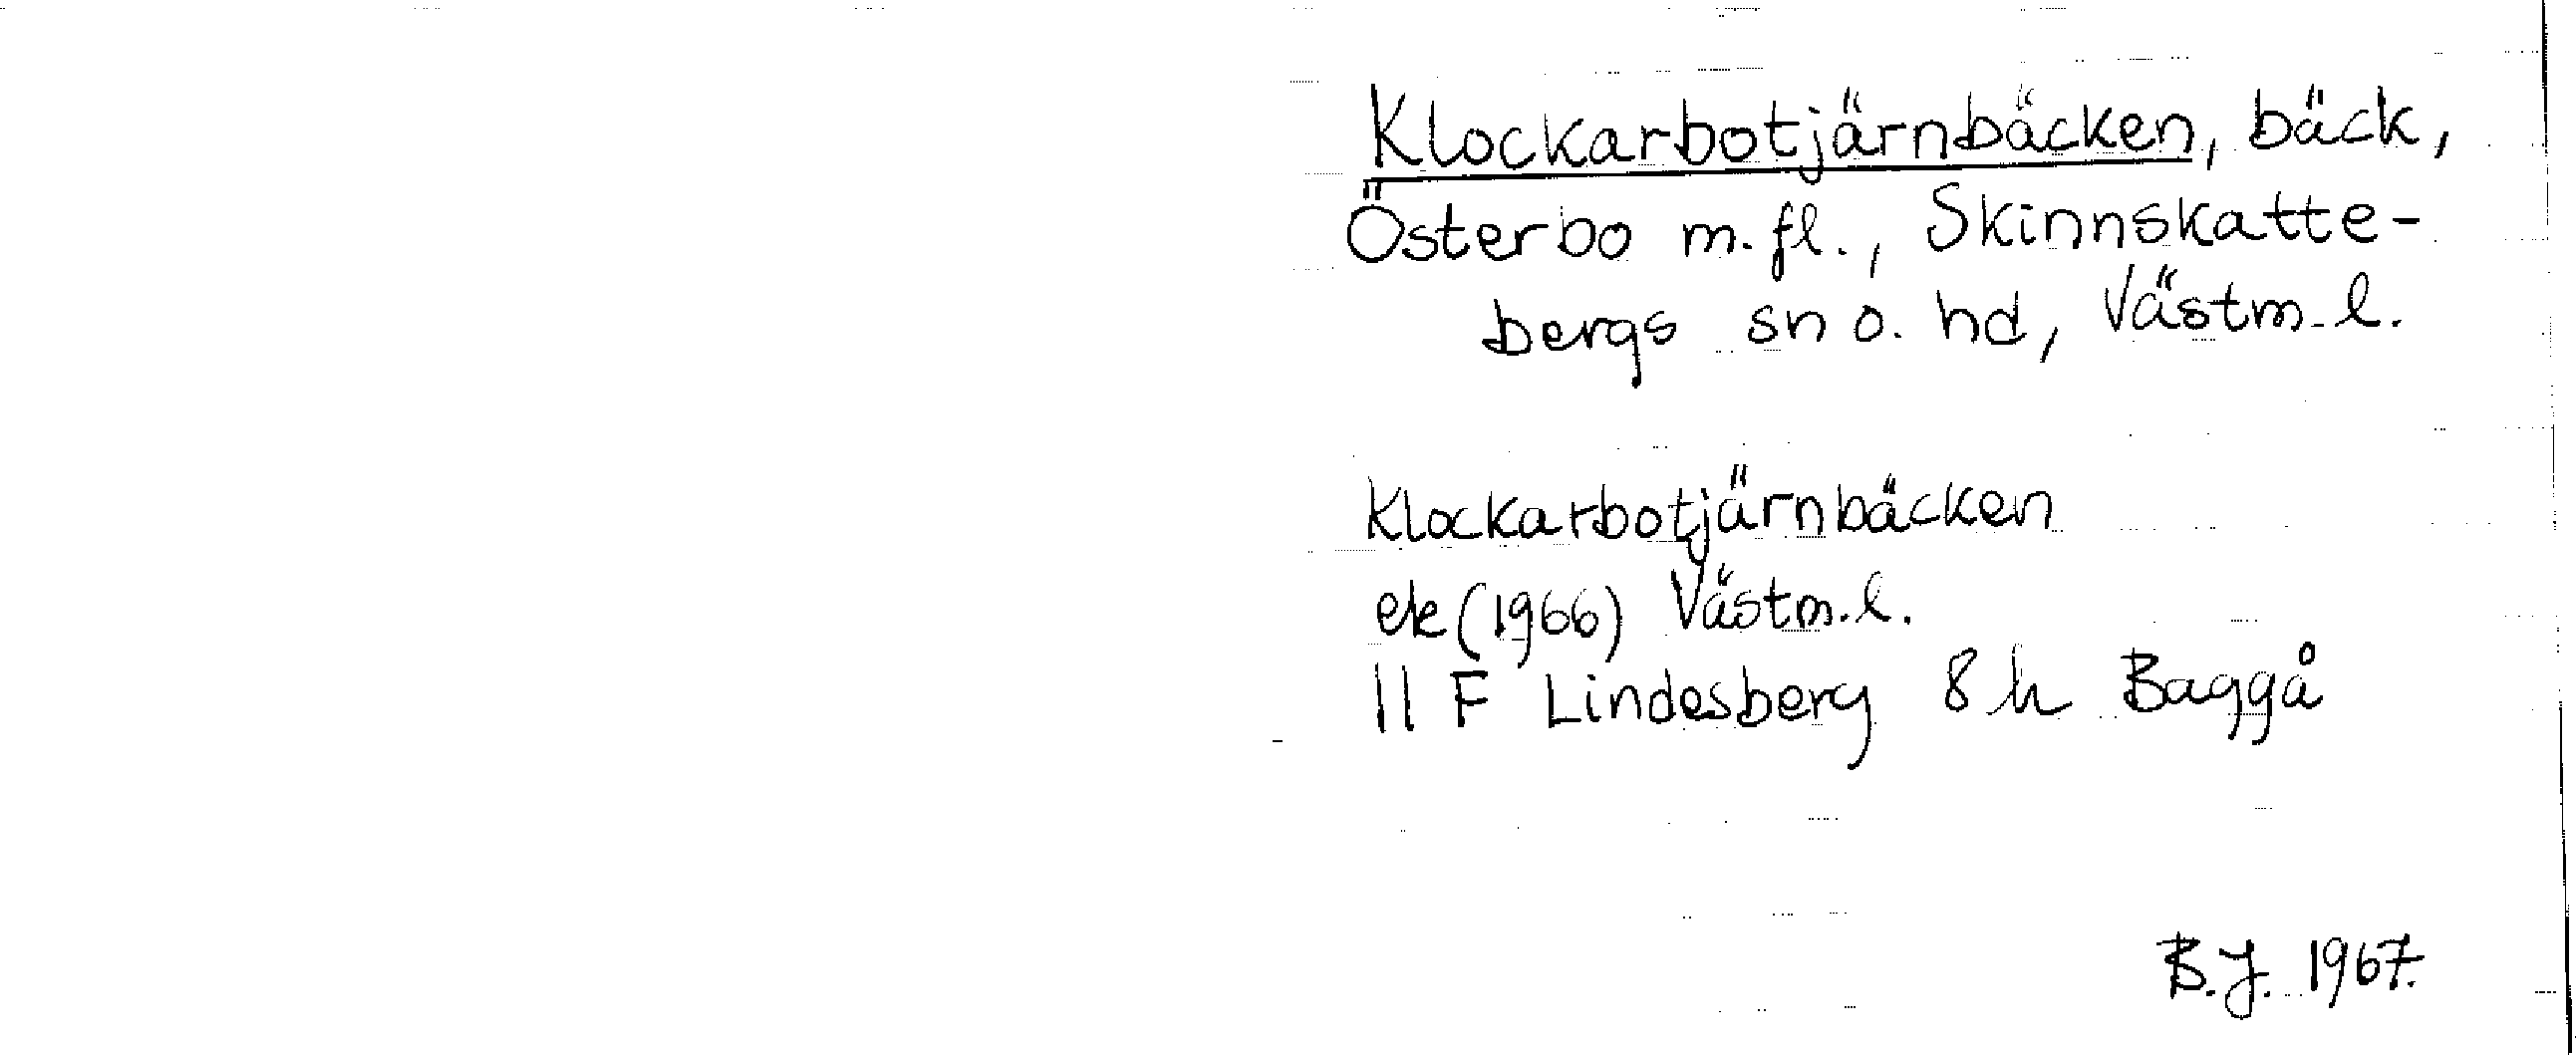 Klockarbotjärnbäcken, bäck,
Österbo m.fl., Skinnskatte-
bergs sn o. hd, Västm.l.
Klockarbotjärnbäcken
ek (1966) Västm.l.
11 F Lindesberg 8 h Baggå
B.J. 1967.